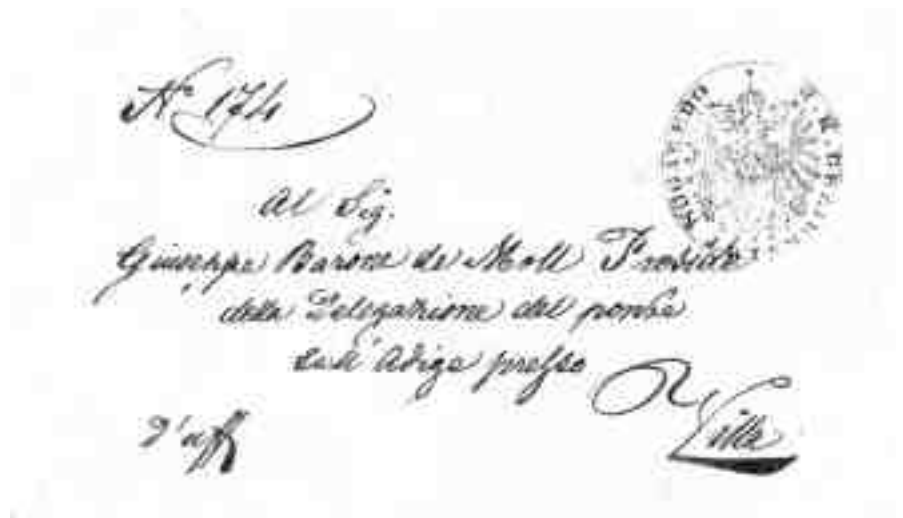 Nr 174
Al Sig.
Giuseppe Barone de Moll Preside
della Delegazione del ponte
sull' Adige presso
Villa
d'uff